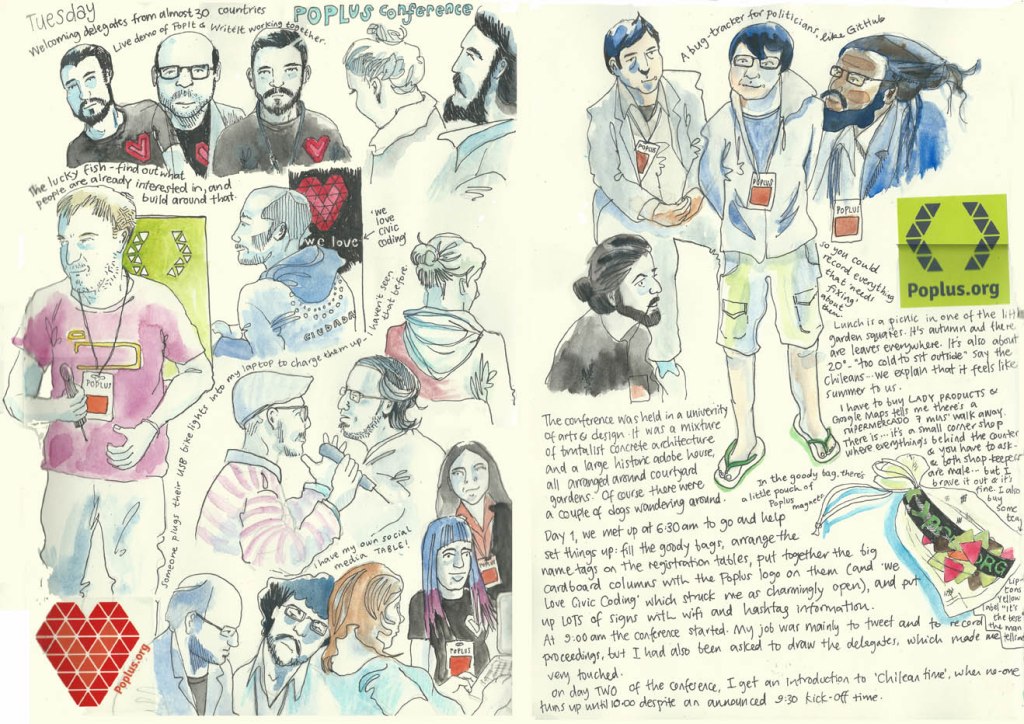 Tuesday
POPLUS CONFERENCE
Welcoming delegates from almost 30 countries
Live demo of PopIt & WriteIt working together.
The lucky fish - find out what
people are already interested in, and
build around that.
we love
'we
love
civic
coding'
haven't seen
that before.
CIUDADA
POPLUS
Someone plugs their USB bike lights into my laptop to charge them up.
i have my own social
media TABLE!
POPLUS
POPLUS
Poplus.org
A bug-tracker for politicians, like GitHub
POPLUS
POPLUS
POPLUS
so you could
record everything
that 'needs
fixing'
about
them
Poplus.org
Lunch is a picnic in one of the litt
garden squares. It's autumn and there
are leaves everywhere. It's also about
20° - "too cold to sit outside" say the
Chileans... we explain that it feels like
summer to us.
I have to buy LADY PRODUCTS &
Google Maps tells me there's a
SUPERMERCADO 7 mins' walk away.
There is... it's a small corner shop
where everything's behind the counter
& you have to ask -
& both shop-keepers
are male... but I
brave it out & it's
fine. I also
buy
some
tea
The conference was held in a university
of arts & design. It was a mixture
of brutalist concrete architecture
and a large historic adobe house,
all arranged around courtyard
gardens. Of course there were
a couple of dogs wandering around.
In the goody bag, there's
a little pouch of
Poplus
magnets
Day 1, we met up at 6:30am to go and help
set things up: fill the goody bags, arrange the
name tags on the registration tables, put together the big
cardboard columns with the Poplus logo on them (and 'we
Love Civic Coding' which struck me as charmingly open), and put
up LOTS of signs with wifi and hashtag information.
At 9:00am the conference started. My job was mainly to tweet and to record
proceedings, but I had also been asked to draw the delegates, which made me
very touched.
on day TWO of the conference, I get an introduction to 'Chilean time', when no-one
turns up until 10:00 despite an announced 9:30 kick-off time.
yellow
label "it's
the best"
the man
tells me